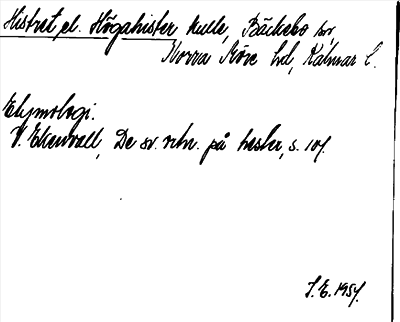 Histret el. Högahister kulle, Bäckebo sn,
Norra Möre hd, Kalmar l.
Etymologi.
V. Ekenvall, De sv. ortn. på hester, s. 107.
I.E. 1957.